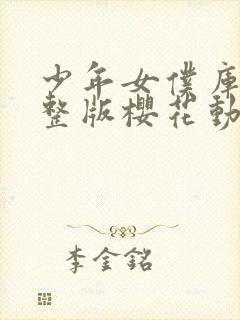 少年女僕庫
整版櫻花動
李金銘